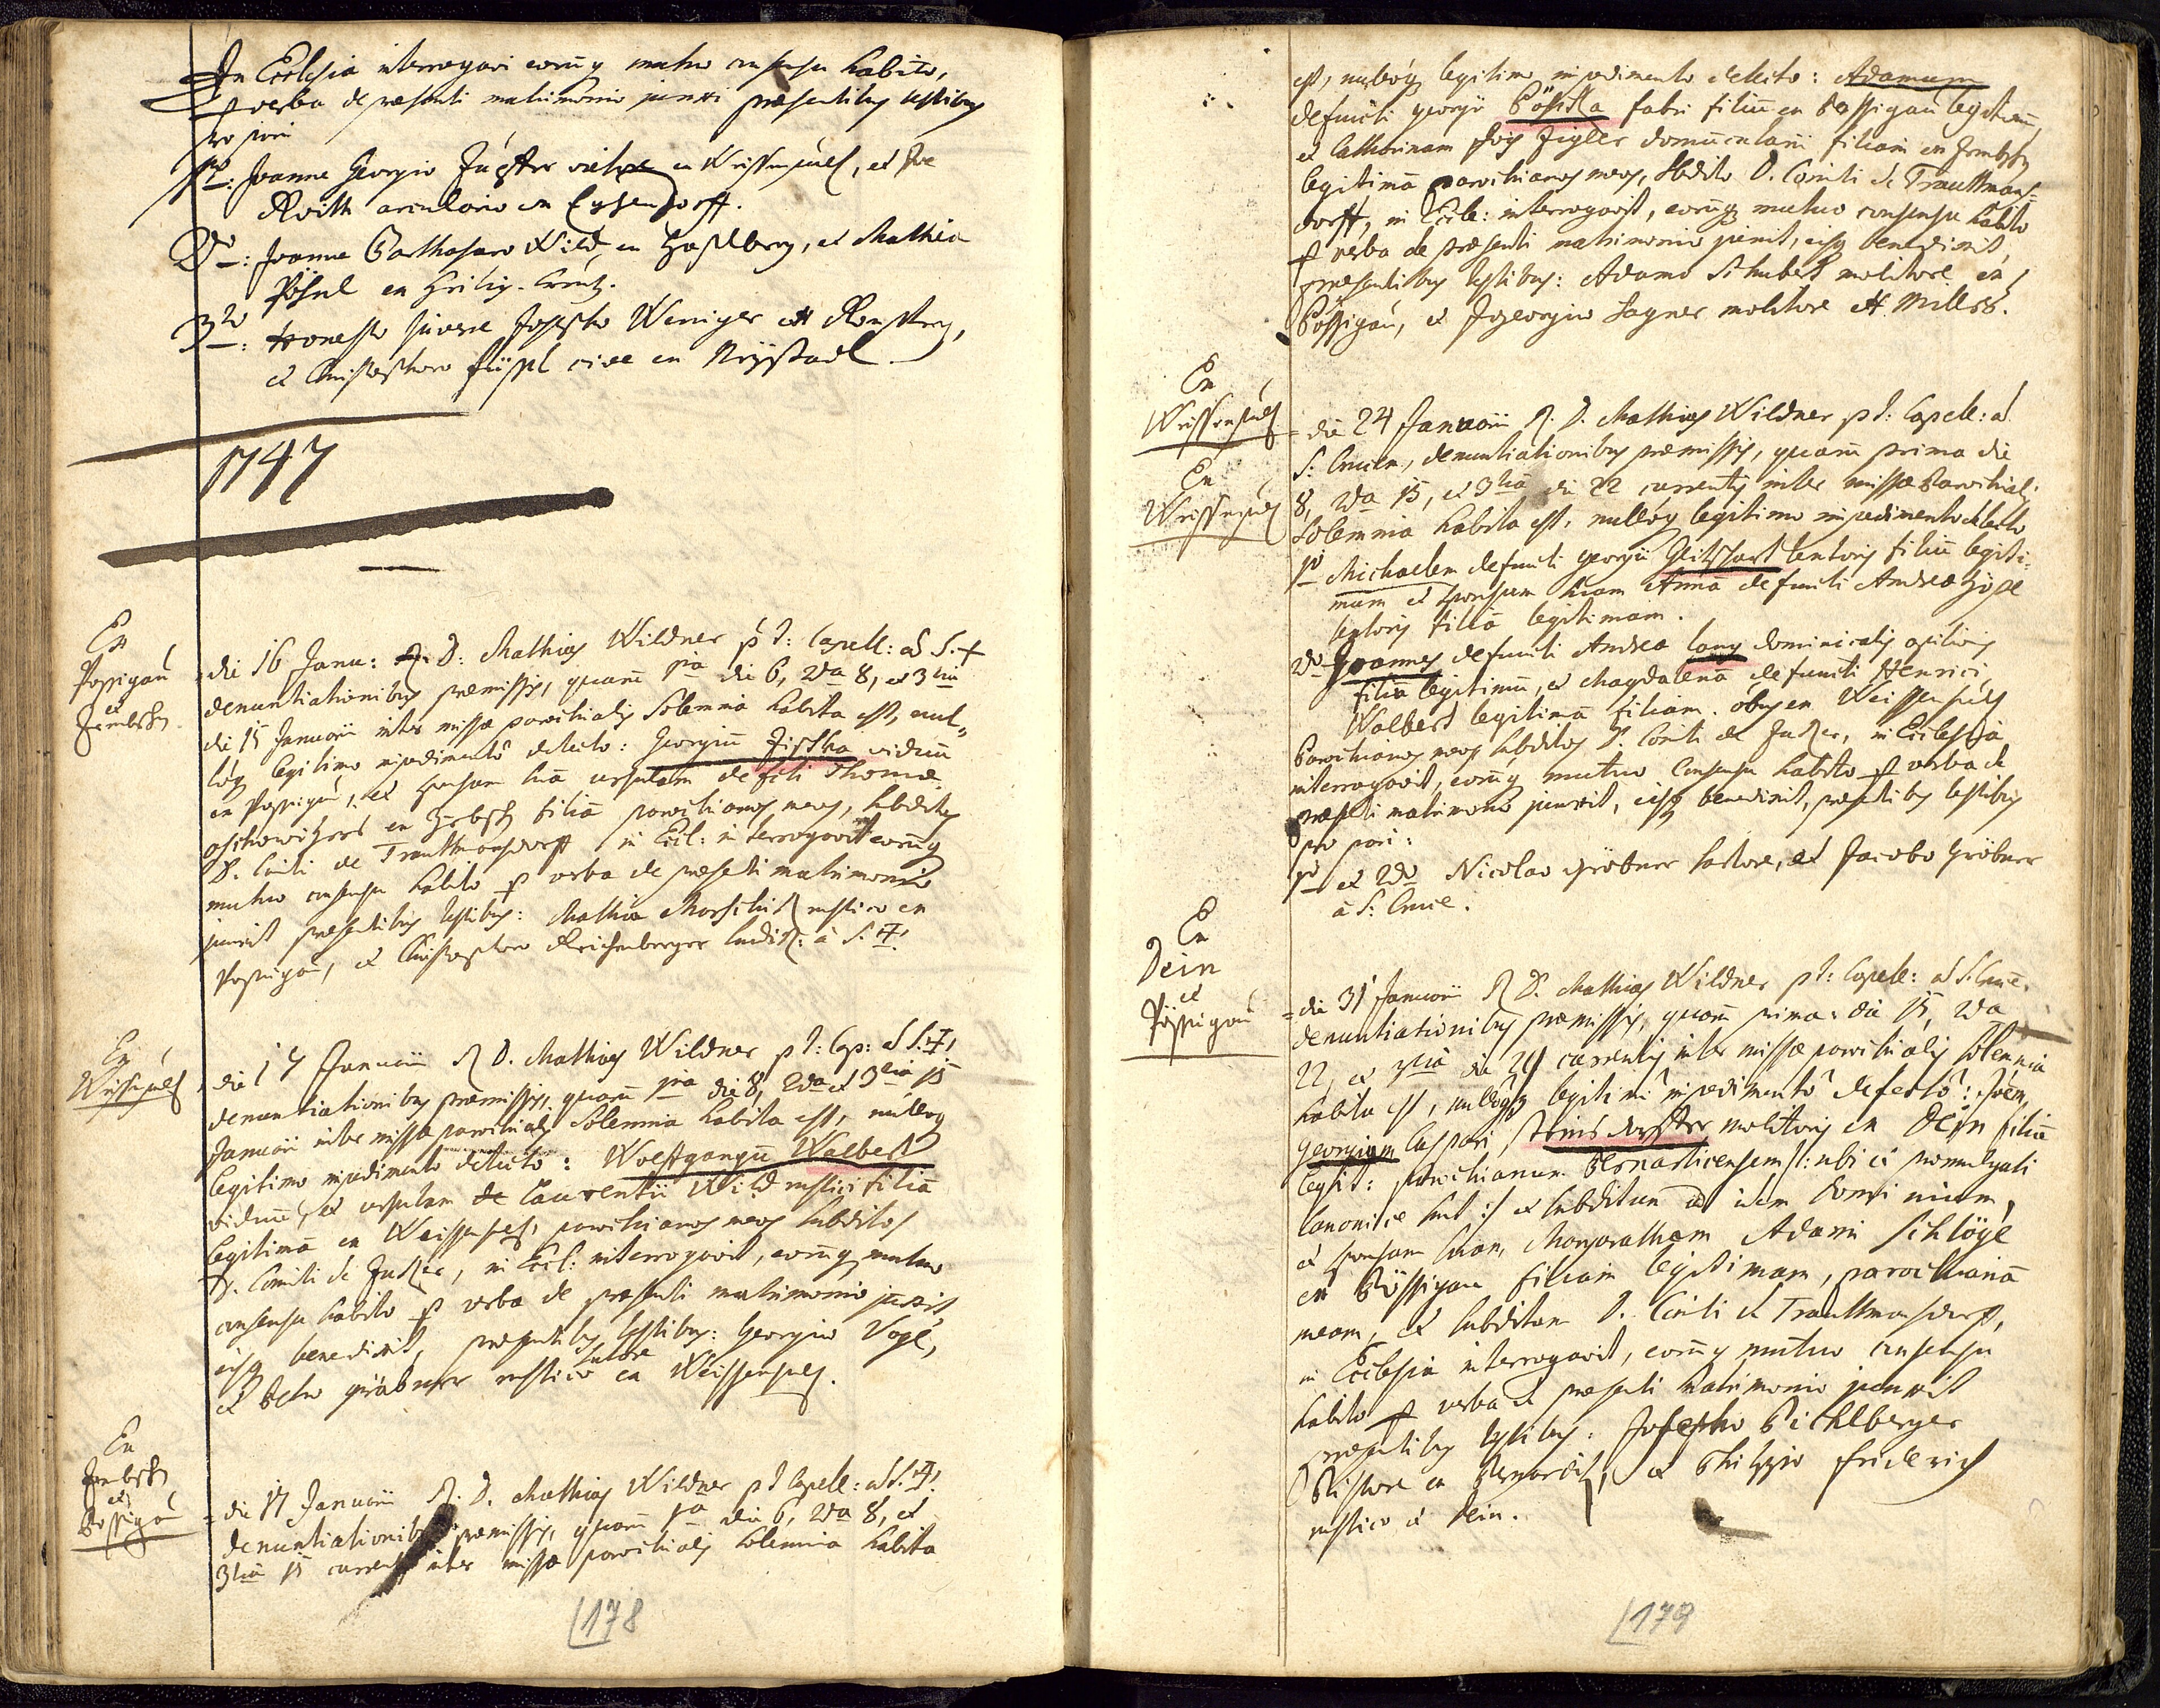 In Ecclesia interrogavi eorumq mutuo consensu habito,
p verba de praesenti matrimonio junxi praesentibus testibus
pro pari
1mo: Joanne Georgio en Weissensulz, et Joe
arculario en Eysendorff.
2do: Joanne Balthasaro Wild, en Haslberg, et Mathia
Pöhnl en Heilig-Creutz.
3tio: Honesto juvene Josepho Weniger Ronsperg,
et Christophoro Füssl cive en Neystadl
1747
En
Possigau
et
die 16 Janu: R. D: Mathias Wildner p t: Capell: ad S. +
denuntiationibus praemissis, quarum 1ma die 6, 2da 8, et 3tia
die 15 Januarii inter missae parochialis Solemnia habita est, nul„
loq legitimo impedimento detecto: Georgium Zistka viduum
en Possigau, et sponsam suam Ursulam defcti Thomae
en filiam parochianos meos, subditos
D. Comiti de Trauttmansdorff in Eccl: interrogavit eorumq
mutuo consensu habito p verba de praesenti matrimonio
junxit praesentibus testibus: Mathia rustico en
Possigau, et Christophoro Reichenberger ludir: à S. +
En
Weissensulz
die 17 Januarii R D. Mathias Wildner p t: Cap: ad S. +
denuntiationibus praemissis, quarum 1ma die 8, 2da et 3tia 15
Januarii inter missae parochialis Solemnia habita est, nulloq
legitimo impedimento detecto: Wolffgangum Walbert
viduum, et Ursulam de Laurentii Wild rustici filiam
legitimam en Weissensulz, parochianos meos subditos
D. Comiti de, in Eccl: interrogavit, eorumq mutuo
consensu habito p verba de praesenti matrimonio junxit,
eisq benedixit, praesentibus testibus: Georgio Vogl,
sutore
et Petro Gröbner rustico en Weissensulz.
En
et
Possigau
die 17 Januarii R. D. Mathias Wildner p t Capell: ad S. +
denuntiationibus praemissis, quarum 1ma die 6, 2da 8, et
3tia 15 currentis inter missae parochialis Solemnia habita
178
est, nulloq legitimo impedimento detecto: Adamum
defuncti Georgii fabri filium en Possigau legitimum,
et Catharinam Jois Zigler domuncularii filiam en
legitimam parochianos meos, subditos D. Comiti de Trauttmans=
dorff, in Eccle: interrogavit, eorumq mutuo consensu habito
p verba de praesenti matrimonio junxit, eisq benedixit,
praesentibus testibus: Adamo Schubert molitore en
Possigau, et Jogeorgio Lagner molitore
En
Weissensulz
En
Weissensulz
die 24 Januarii R. D. Mathias Wildner p t: Capell: ad
S: Crucem, denuntiationibus praemissis, quarum prima die
8, 2da 15, et 3tia die 22 currentis inter missae Parochialis
Solemnia habita est, nulloq legitimo impedimento detecto
1mo Michaelem defuncti Georgii textoris filium legiti-
mum et sponsam suam Annam defuncti Andreae
textoris filiam legitimam.
2do Joannem defuncti Andreae Lang dominicalis opilionis
filium legitimum, et Magdalenam defuncti Henrici
Walbert legitimam filiam. en Weissensulz
Parochianos meos subditos D. Comiti de, in Ecclesia
interrogavit, eorumq mutuo consensu habito p verba de
praesenti matrimonio junxit, eisq benedixit, praesentibus testibus
pro pari:
1mo et 2do Nicolao Gröbner sartore, et Jacobo Gröbner
à S: Cruce.
En
Dein
et
Possigau
die 31 Januarii R D. Mathias Wildner p t: Capell: ad S. Cruc:
denuntiationibus praemissis, quarum prima die 15, 2da
22, et 3tia die 29 currentis inter missae parochialis Solemnia
habita est, nulloq legitimo impedimento detecto: Joem
Georgium Caspari molitoris en Dein filium
legit: parochianum Bernarticensem /: ubi et promulgati
canonice sunt :/ et subditum ad idem dominium,
et sponsam suam Margaretham Adami Schlögl
en Possigau filiam legitimam, parochianam
meam, et subditam D. Comiti de Trauttmansdorff,
in Ecclesia interrogavit, eorumq mutuo consensu
habito p verba de praesenti matrimonio junxit
praesentibus testibus: Josepho Pichlberger
Pistore en, et Philippo Friderich
rustico à Dein.
179